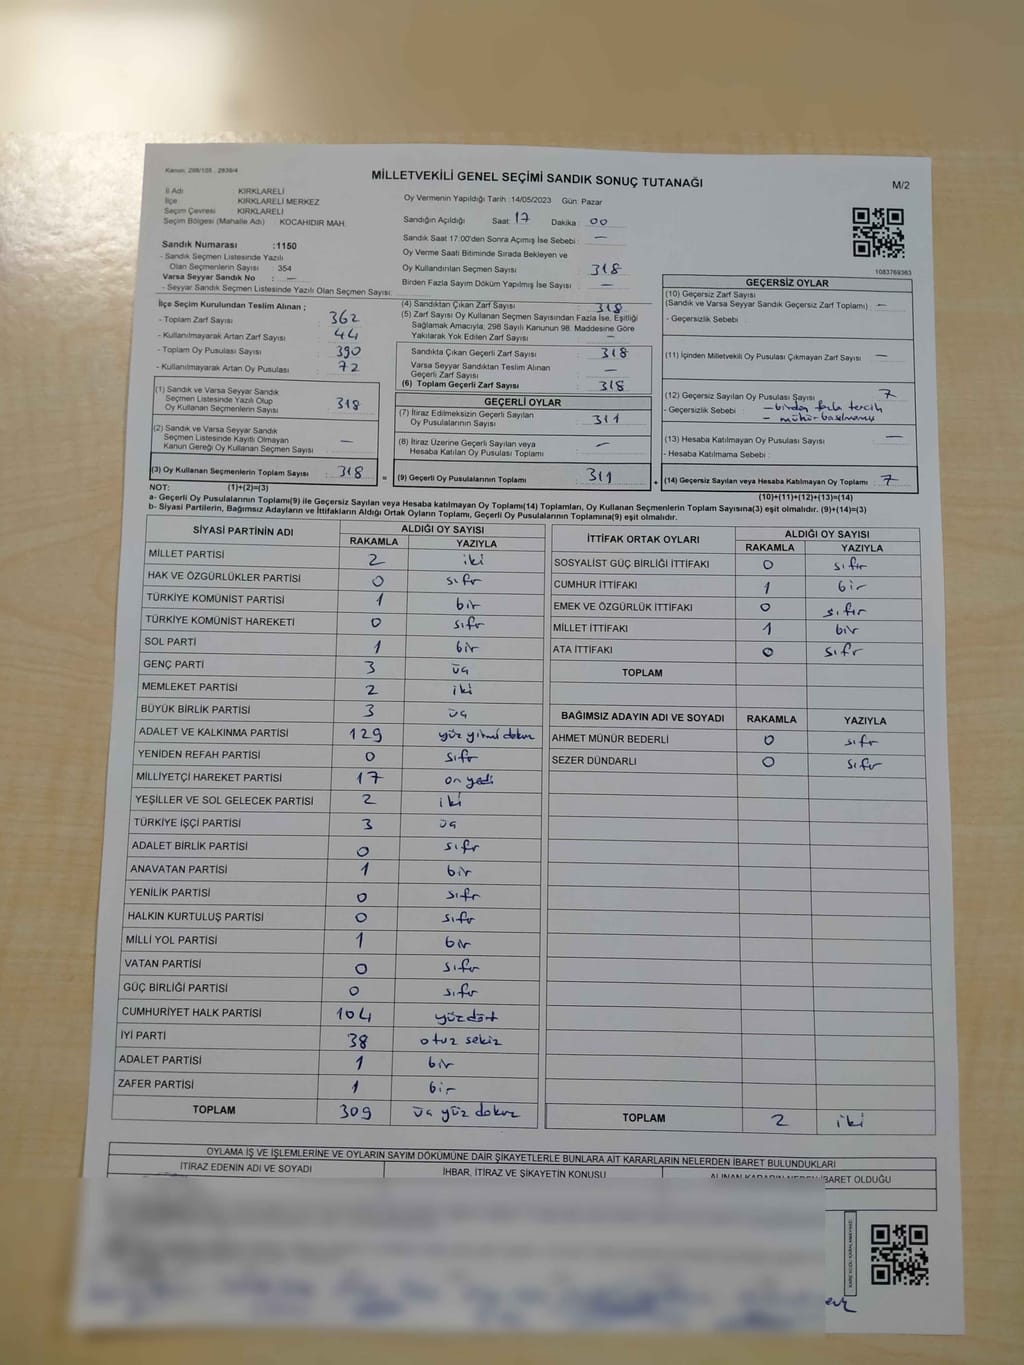 Kanun: 298/105 , 2839/4
MİLLETVEKİLİ GENEL SEÇİMİ SANDIK SONUÇ TUTANAĞI
M/2
İl Adı : KIRKLARELİ
İlçe : KIRKLARELİ MERKEZ
Seçim Çevresi : KIRKLARELİ
Seçim Bölgesi (Mahalle Adı) : KOCAHIDIR MAH.
Sandık Numarası :1150
- Sandık Seçmen Listesinde Yazılı
Olan Seçmenlerin Sayısı : 354
Varsa Seyyar Sandık No : —
- Seyyar Sandık Seçmen Listesinde Yazılı Olan Seçmen Sayısı:
Oy Vermenin Yapıldığı Tarih :14/05/2023 Gün: Pazar
Sandığın Açıldığı Saat: 17 Dakika : 00
Sandık Saat 17:00'den Sonra Açımış İse Sebebi : —
Oy Verme Saati Bitiminde Sırada Bekleyen ve
Oy Kullandırılan Seçmen Sayısı : 318
Birden Fazla Sayım Döküm Yapılmış İse Sayısı : —
1083769363
İlçe Seçim Kurulundan Teslim Alınan ;
- Toplam Zarf Sayısı : 362
- Kullanılmayarak Artan Zarf Sayısı : 44
- Toplam Oy Pusulası Sayısı : 390
- Kullanılmayarak Artan Oy Pusulası : 72
(1) Sandık ve Varsa Seyyar Sandık
Seçmen Listesinde Yazılı Olup
Oy Kullanan Seçmenlerin Sayısı : 318
(2) Sandık ve Varsa Seyyar Sandık
Seçmen Listesinde Kayıtlı Olmayan
Kanun Gereği Oy Kullanan Seçmen Sayısı : —
(3) Oy Kullanan Seçmenlerin Toplam Sayısı : 318
(4) Sandıktan Çıkan Zarf Sayısı : 318
(5) Zarf Sayısı Oy Kullanan Seçmen Sayısından Fazla İse, Eşitliği
Sağlamak Amacıyla, 298 Sayılı Kanunun 98. Maddesine Göre
Yakılarak Yok Edilen Zarf Sayısı : —
Sandıkta Çıkan Geçerli Zarf Sayısı : 318
Varsa Seyyar Sandıktan Teslim Alınan
Geçerli Zarf Sayısı : —
(6) Toplam Geçerli Zarf Sayısı : 318
GEÇERLİ OYLAR
(7) İtiraz Edilmeksizin Geçerli Sayılan
Oy Pusulalarının Sayısı : 311
(8) İtiraz Üzerine Geçerli Sayılan veya
Hesaba Katılan Oy Pusulası Toplamı : —
= (9) Geçerli Oy Pusulalarının Toplamı : 311
GEÇERSİZ OYLAR
(10) Geçersiz Zarf Sayısı
(Sandık ve Varsa Seyyar Sandık Geçersiz Zarf Toplamı) : —
- Geçersizlik Sebebi :
(11) İçinden Milletvekili Oy Pusulası Çıkmayan Zarf Sayısı : —
(12) Geçersiz Sayılan Oy Pusulası Sayısı : 7
- Geçersizlik Sebebi : — birden fazla tercih
— mühür basılmamış
(13) Hesaba Katılmayan Oy Pusulası Sayısı : —
- Hesaba Katılmama Sebebi :
+ (14) Geçersiz Sayılan veya Hesaba Katılmayan Oy Toplamı : 7
NOT: (1)+(2)=(3) (10)+(11)+(12)+(13)=(14)
a- Geçerli Oy Pusulalarının Toplamı(9) ile Geçersiz Sayılan veya Hesaba katılmayan Oy Toplamı(14) Toplamları, Oy Kullanan Seçmenlerin Toplam Sayısına(3) eşit olmalıdır. (9)+(14)=(3)
b- Siyasi Partilerin, Bağımsız Adayların ve İttifakların Aldığı Ortak Oyların Toplamı, Geçerli Oy Pusulalarının Toplamına(9) eşit olmalıdır.
SİYASİ PARTİNİN ADI ALDIĞI OY SAYISI
RAKAMLA YAZIYLA
MİLLET PARTİSİ 2 iki
HAK VE ÖZGÜRLÜKLER PARTİSİ 0 sıfır
TÜRKİYE KOMÜNİST PARTİSİ 1 bir
TÜRKİYE KOMÜNİST HAREKETİ 0 sıfır
SOL PARTİ 1 bir
GENÇ PARTİ 3 üç
MEMLEKET PARTİSİ 2 iki
BÜYÜK BİRLİK PARTİSİ 3 üç
ADALET VE KALKINMA PARTİSİ 129 yüz yirmi dokuz
YENİDEN REFAH PARTİSİ 0 sıfır
MİLLİYETÇİ HAREKET PARTİSİ 17 on yedi
YEŞİLLER VE SOL GELECEK PARTİSİ 2 iki
TÜRKİYE İŞÇİ PARTİSİ 3 üç
ADALET BİRLİK PARTİSİ 0 sıfır
ANAVATAN PARTİSİ 1 bir
YENİLİK PARTİSİ 0 sıfır
HALKIN KURTULUŞ PARTİSİ 0 sıfır
MİLLİ YOL PARTİSİ 1 bir
VATAN PARTİSİ 0 sıfır
GÜÇ BİRLİĞİ PARTİSİ 0 sıfır
CUMHURİYET HALK PARTİSİ 104 yüzdört
İYİ PARTİ 38 otuz sekiz
ADALET PARTİSİ 1 bir
ZAFER PARTİSİ 1 bir
TOPLAM 309 üç yüz dokuz
İTTİFAK ORTAK OYLARI ALDIĞI OY SAYISI
RAKAMLA YAZIYLA
SOSYALİST GÜÇ BİRLİĞİ İTTİFAKI 0 sıfır
CUMHUR İTTİFAKI 1 bir
EMEK VE ÖZGÜRLÜK İTTİFAKI 0 sıfır
MİLLET İTTİFAKI 1 bir
ATA İTTİFAKI 0 sıfır
TOPLAM
BAĞIMSIZ ADAYIN ADI VE SOYADI RAKAMLA YAZIYLA
AHMET MÜNÜR BEDERLİ 0 sıfır
SEZER DÜNDARLI 0 sıfır
TOPLAM 2 iki
OYLAMA İŞ VE İŞLEMLERİNE VE OYLARIN SAYIM DÖKÜMÜNE DAİR ŞİKAYETLERLE BUNLARA AİT KARARLARIN NELERDEN İBARET BULUNDUKLARI
İTİRAZ EDENİN ADI VE SOYADI İHBAR, İTİRAZ VE ŞİKAYETİN KONUSU ALINAN KARARIN NEDEN İBARET OLDUĞU
KARE KODU KARALAMAYINIZ.